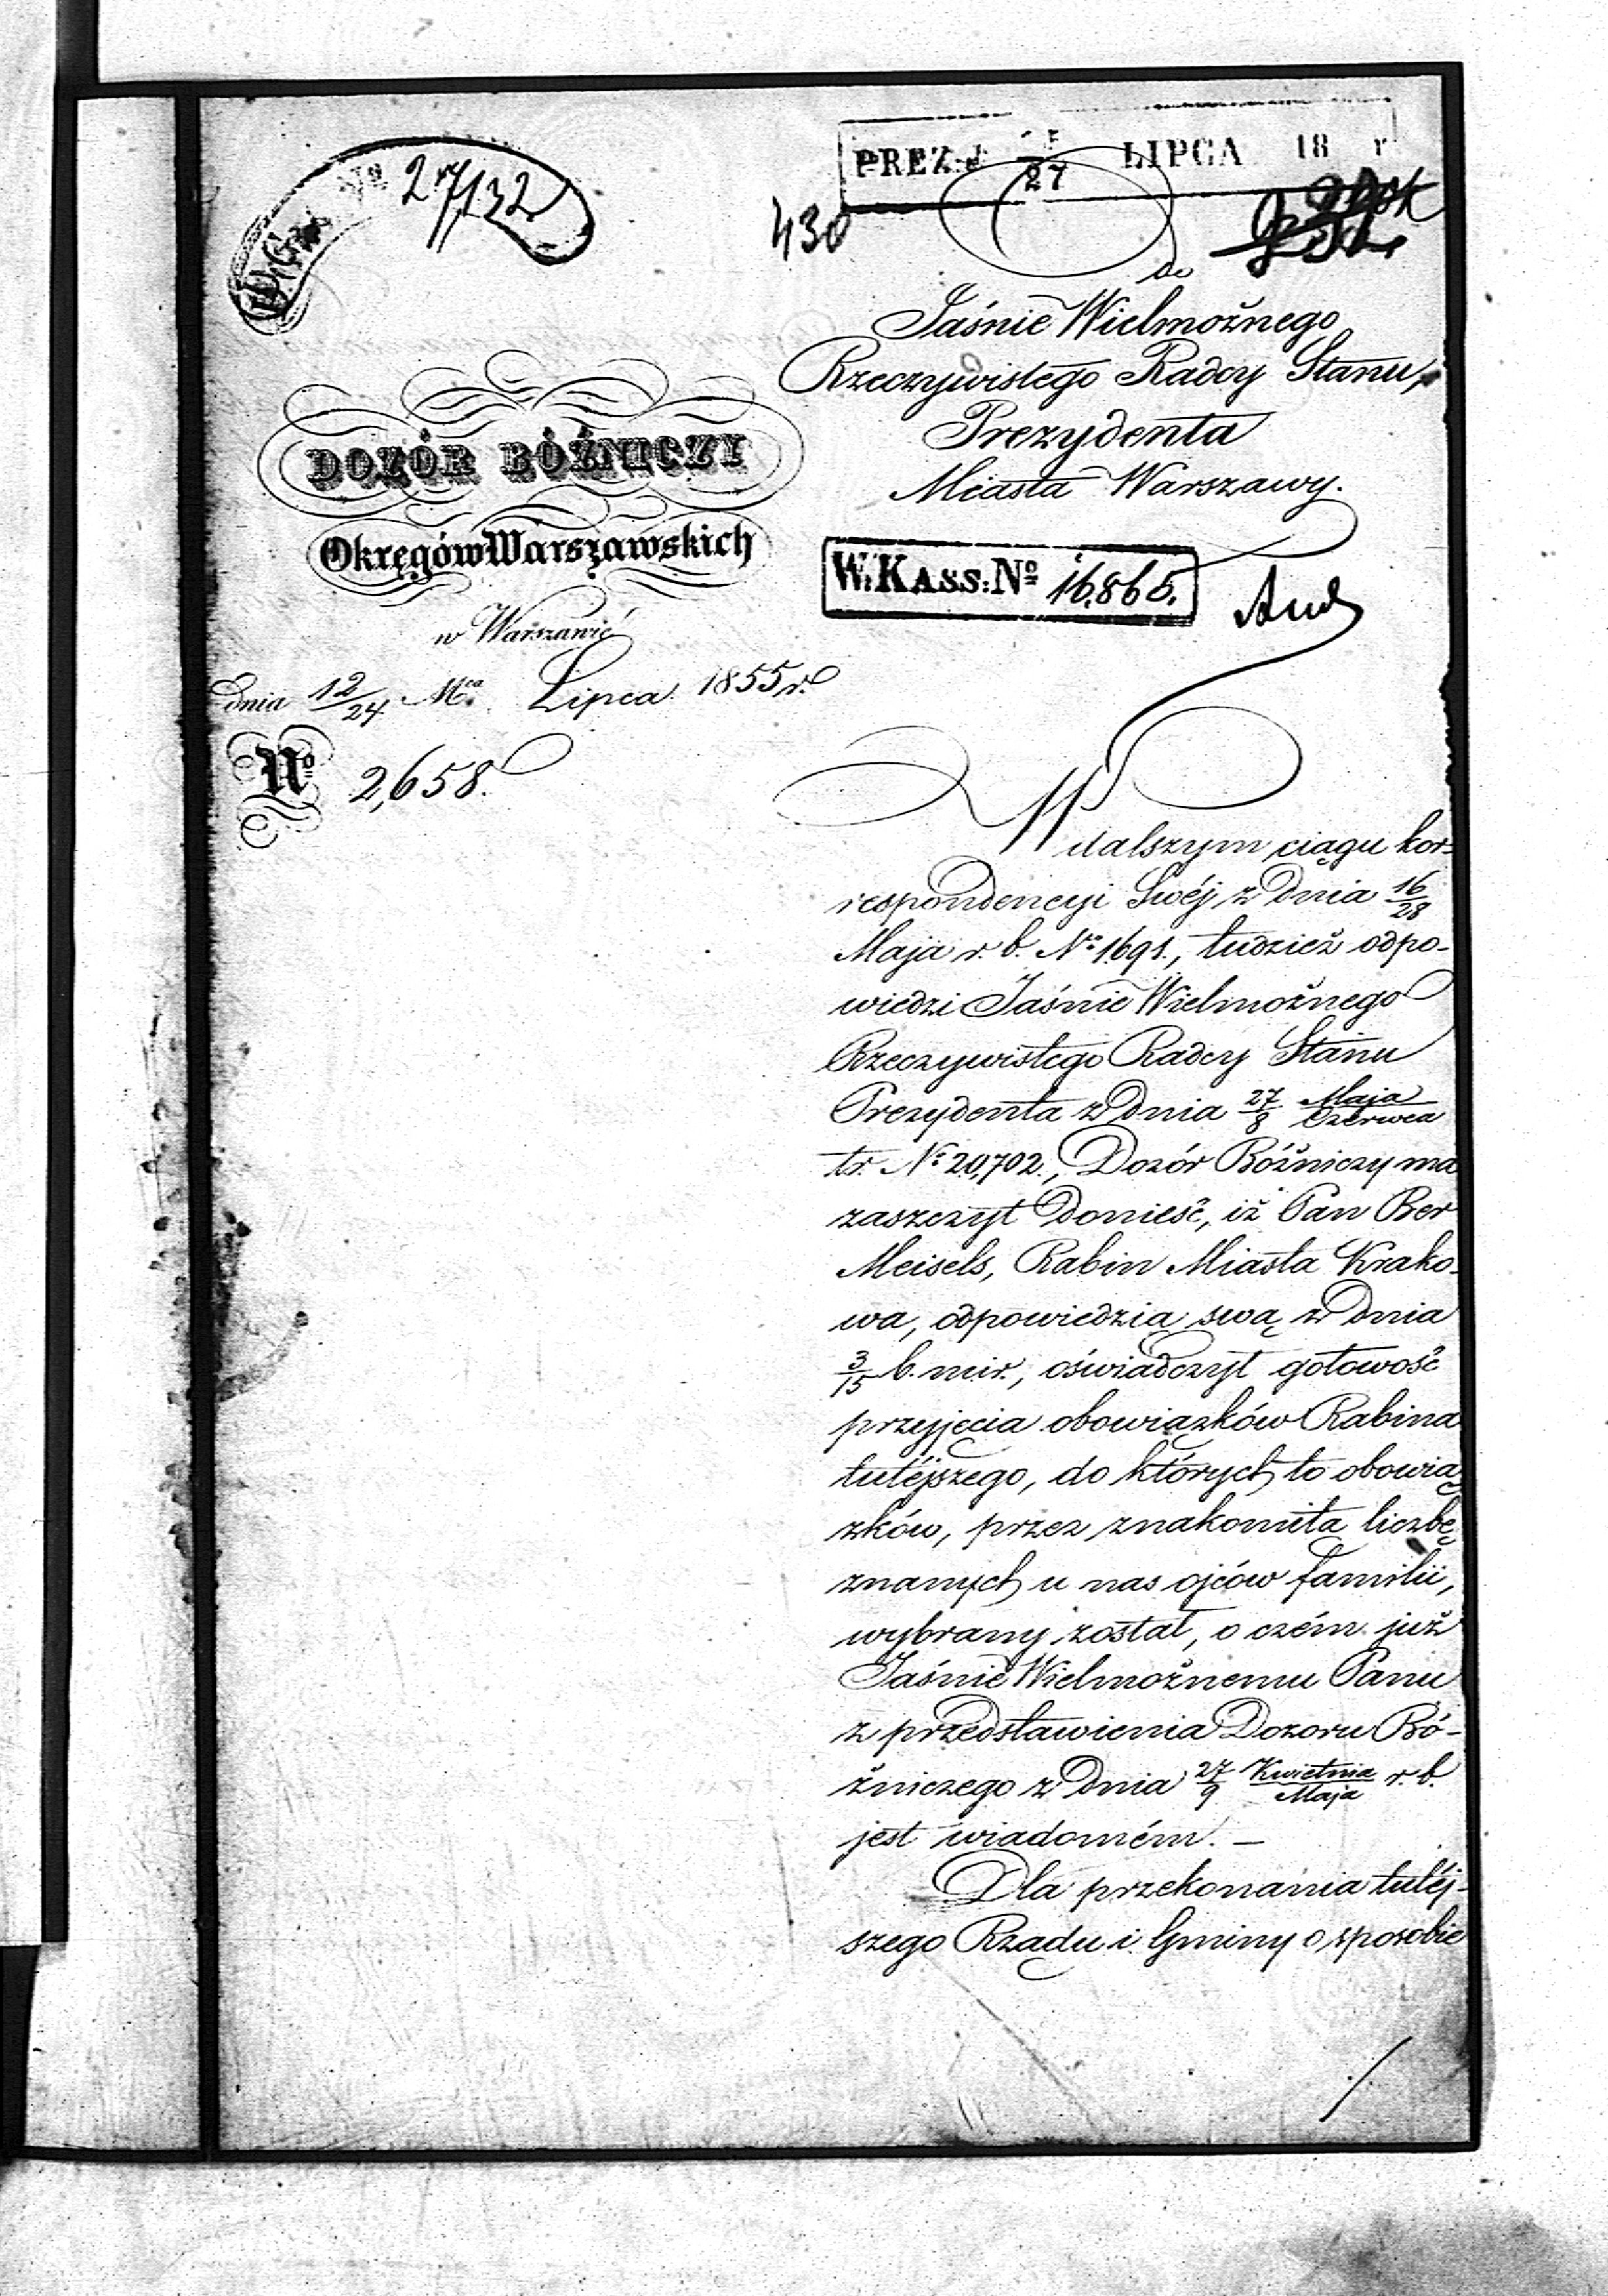 No 27132
PREZ: d 27 LIPCA 18 r
430
do
Jaśnie Wielmożnego
Rzeczywistego Radcy Stanu,
Prezydenta
Miasta Warszawy.
DOZÓR BÓŹNICZY
Okręgów Warszawskich
w Warszawie
dnia 12/24 Mca Lipca 1855 r.
No 2,658.
W. KASS: No 16,865.
W dalszym ciągu kor-
respondencyi Swéj z dnia 16/28
Maja r. b. No 1691., tudzież odpo-
wiedzi Jaśnie Wielmożnego
Rzeczywistego Radcy Stanu
Prezydenta z dnia 27/8 Maja/Czerwca
t. r. No 20,702., Dozór Bóźniczy ma
zaszczyt donieść, iż Pan Ber
Meisels, Rabin Miasta Krako-
wa, odpowiedzią swą z dnia
3/15 b. m i r., oświadczył gotowość
przyjęcia obowiązków Rabina
tutéjszego, do których to obowią
zków, przez znakomitą liczbę
znanych u nas ojców familii,
wybrany został, o czém już
Jaśnie Wielmożnemu Panu
z przedstawienia Dozoru Bó-
źniczego z dnia 27/9 Kwietnia/Maja r. b.
jest wiadomém. —
Dla przekonania tutéj-
szego Rządu i Gminy o sposobie